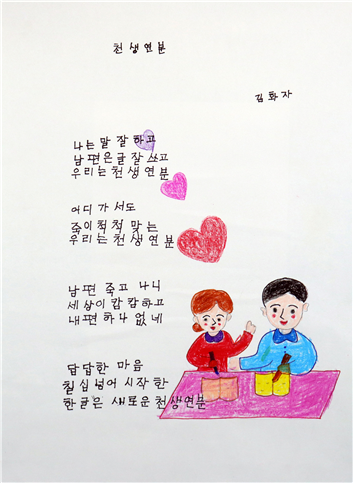 천생연분
김화자
나는 말 잘 하고
남편은 글 잘 쓰고
우리는 천생연분
어디 가서도
죽이 척척 맞는
우리는 천생연분
남편 죽고 나니
세상이 캄캄하고
내편 하나 없네
답답한 마음
칠십 넘어 시작한
한글은 새로운 천생연분